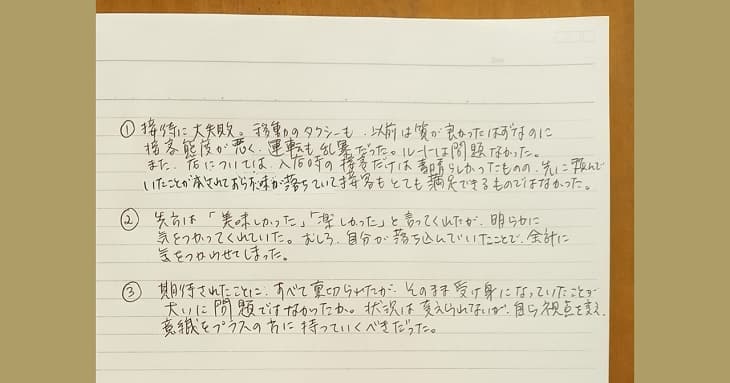 ① 接待に大失敗。移動のタクシーも、以前は質が良かったはずなのに
接客態度が悪く、運転も乱暴だった。ルートは問題なかった。
また、店については、入店時の接客だけは素晴らしかったものの、先に頼んで
いたことが成されておらずお味が落ちていて接客もとても満足できるものではなかった。
② 先方は「美味しかった」「楽しかった」と言ってくれたが、明らかに
気をつかってくれていた。むしろ、自分が落ち込んでいたことで、余計に
気をつかわせてしまった。
③ 期待されたことに、すべて裏切られたが、そのまま受け身になっていたことが
大いに問題ではなかったか。状況は変えられないが、自ら視点を変え、
意識をプラスの方に持っていくべきだった。